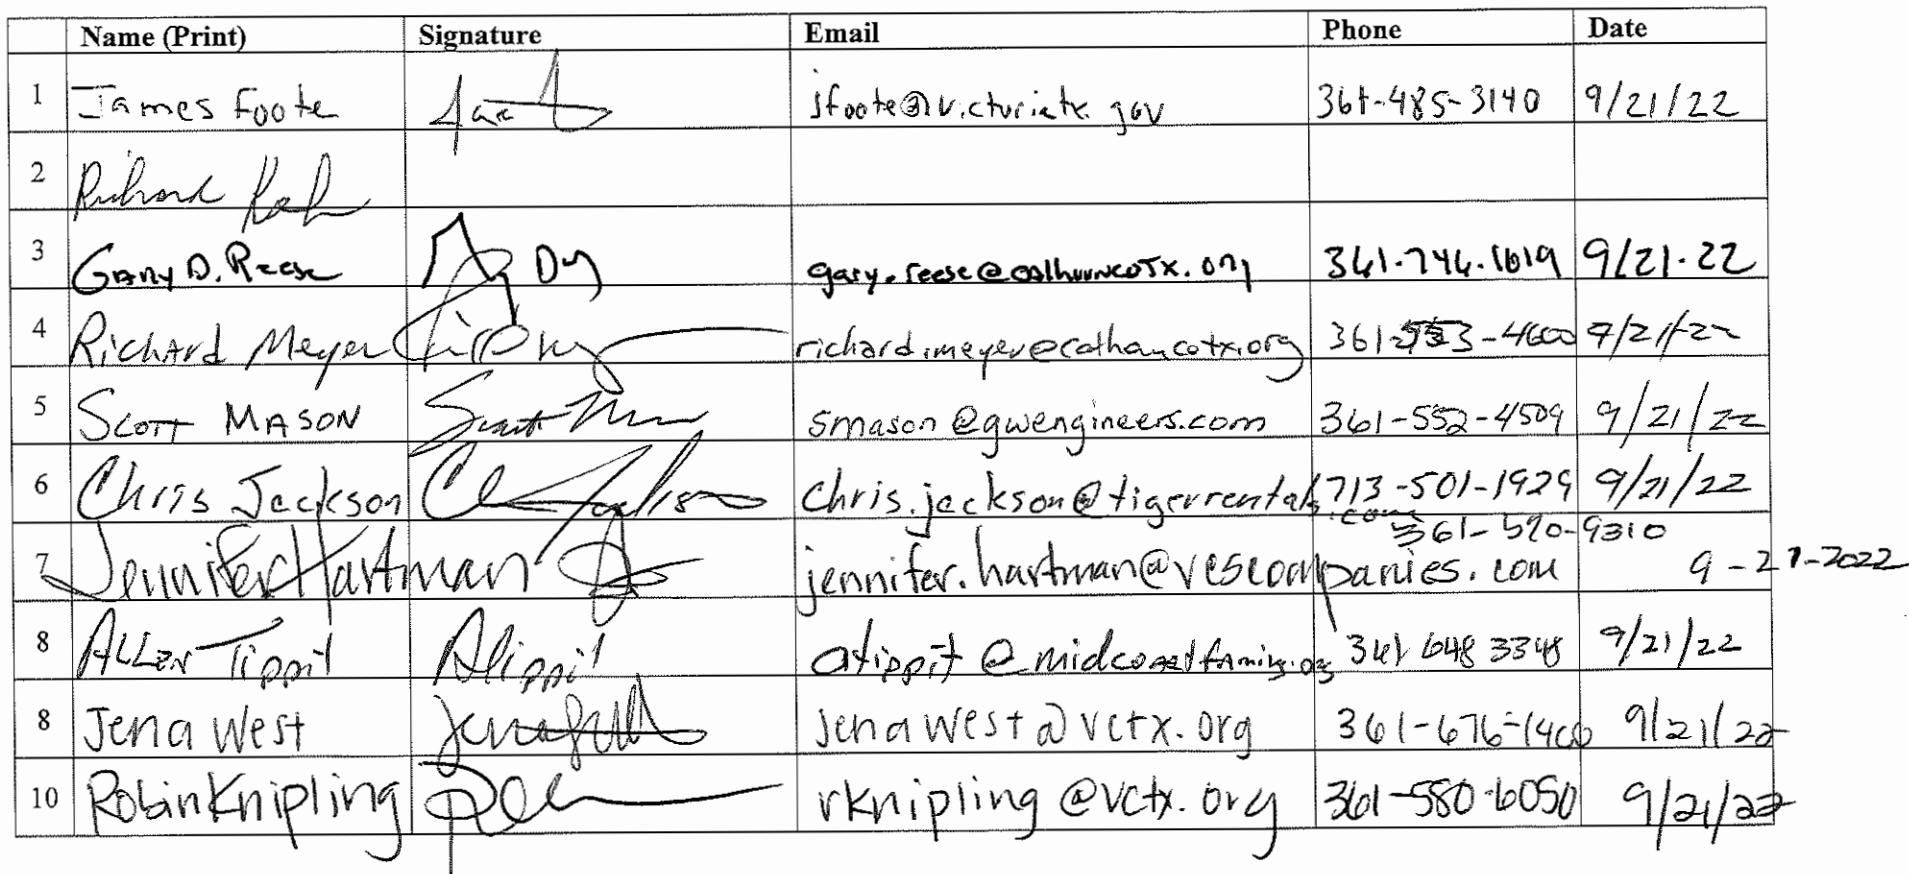 Name (Print) Signature Email Phone Date
1 James Foote jfoote@victoriatx.gov 361-485-3140 9/21/22
2 Richard
3 Gary D. Reese gary.reese@calhouncotx.org 361.746.1619 9/21.22
4 Richard Meyer richard.meyer@calhouncotx.org 9/21/22
5 Scott MASON smason@gwengineers.com 361-552-4509 9/21/22
6 Chris Jackson chris.jackson@tigerrentals 713-501-1929 9/21/22
.com
361-570-9310
7 Jennifer Hartman jennifer.hartman@vescompanies.com 9-21-2022
8 Allen Tippit Atippit atippit@midcoastfamily.org 361 648 3348 9/21/22
8 Jena West jenawest@vctx.org 361-676-1400 9/21/22
10 Robin Knipling rknipling@vctx.org 361-580-6050 9/21/22